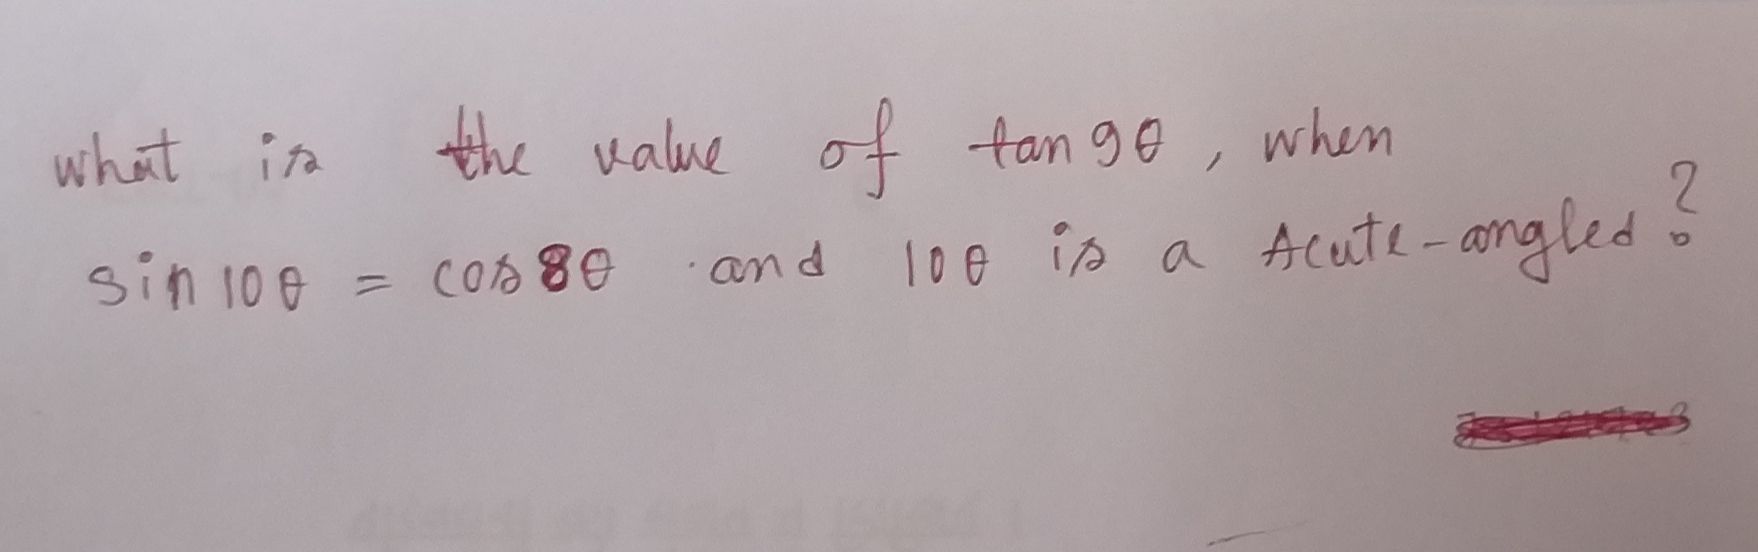 what is the value of tan 9θ, when
sin 10θ = cos 8θ and 10θ is a Acute-angled?